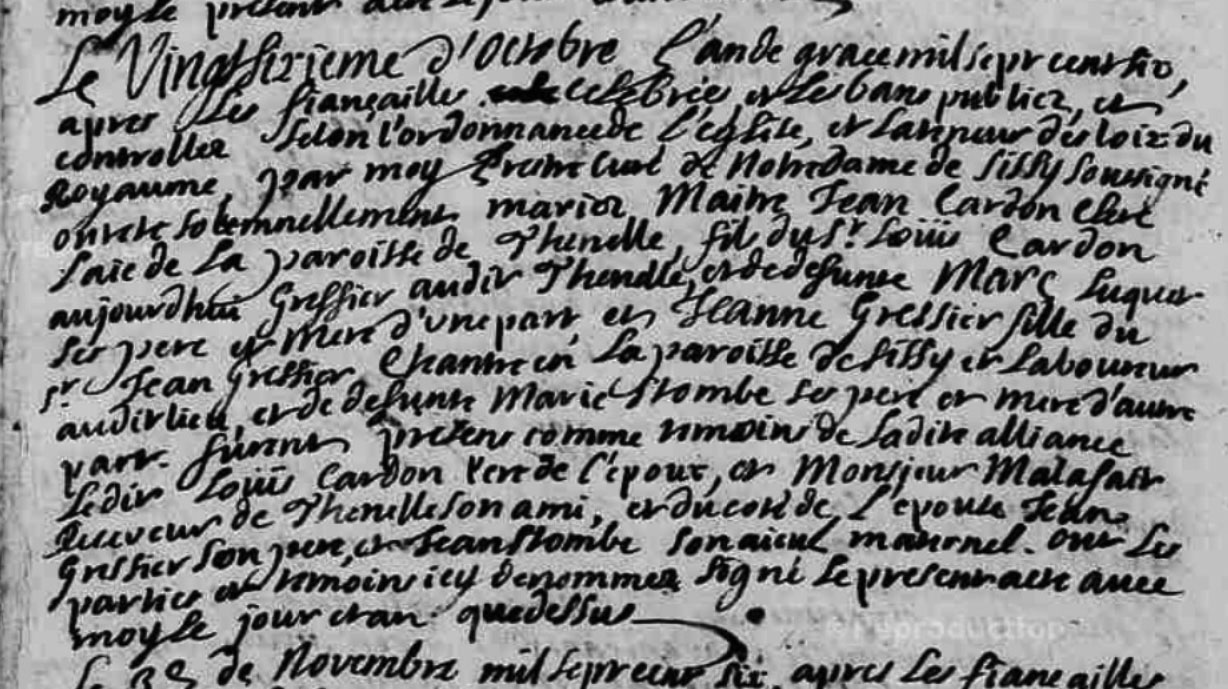 moy le present acte le jour
Le Vingtsixieme d'Octobre L'an de grace mil sept cent six,
apres Les fiançailles celebrées, et les bans publiez, et
controllez selon l'ordonnance de L'église, et la teneur des loix du
Royaume, par moy Prêtre Curé de Notre Dame de Sissy soussigné
ont été solemnellement mariez Maitre Jean Cardon Clerc
laic de La paroisse de Thenelle, fils du Sr. Loüis Cardon
aujourdhui Greffier audit Thenelle, et de defunte Marg Luquet
ses pere et mere d'une part, et Jeanne Greffier fille du
sr. Jean Greffier Chantre en La paroisse de Sissy et Laboureur
audit lieu, et de defunte Marie Stombe ses pere et mere d'autre
part. furent presens comme temoins de Ladite alliance
Ledit Loüis Cardon Pere de l'époux, et Monsieur Malafait
Receveur de Thenelle son ami, et du coté de L'epouse Jean
Greffier son pere, et Jean Stombe son aieul maternel. ont Les
parties et temoins icy denommez signé Le present acte avec
moy le jour et an que dessus
Le de Novembre mil sept cent six, apres Les fiançailles